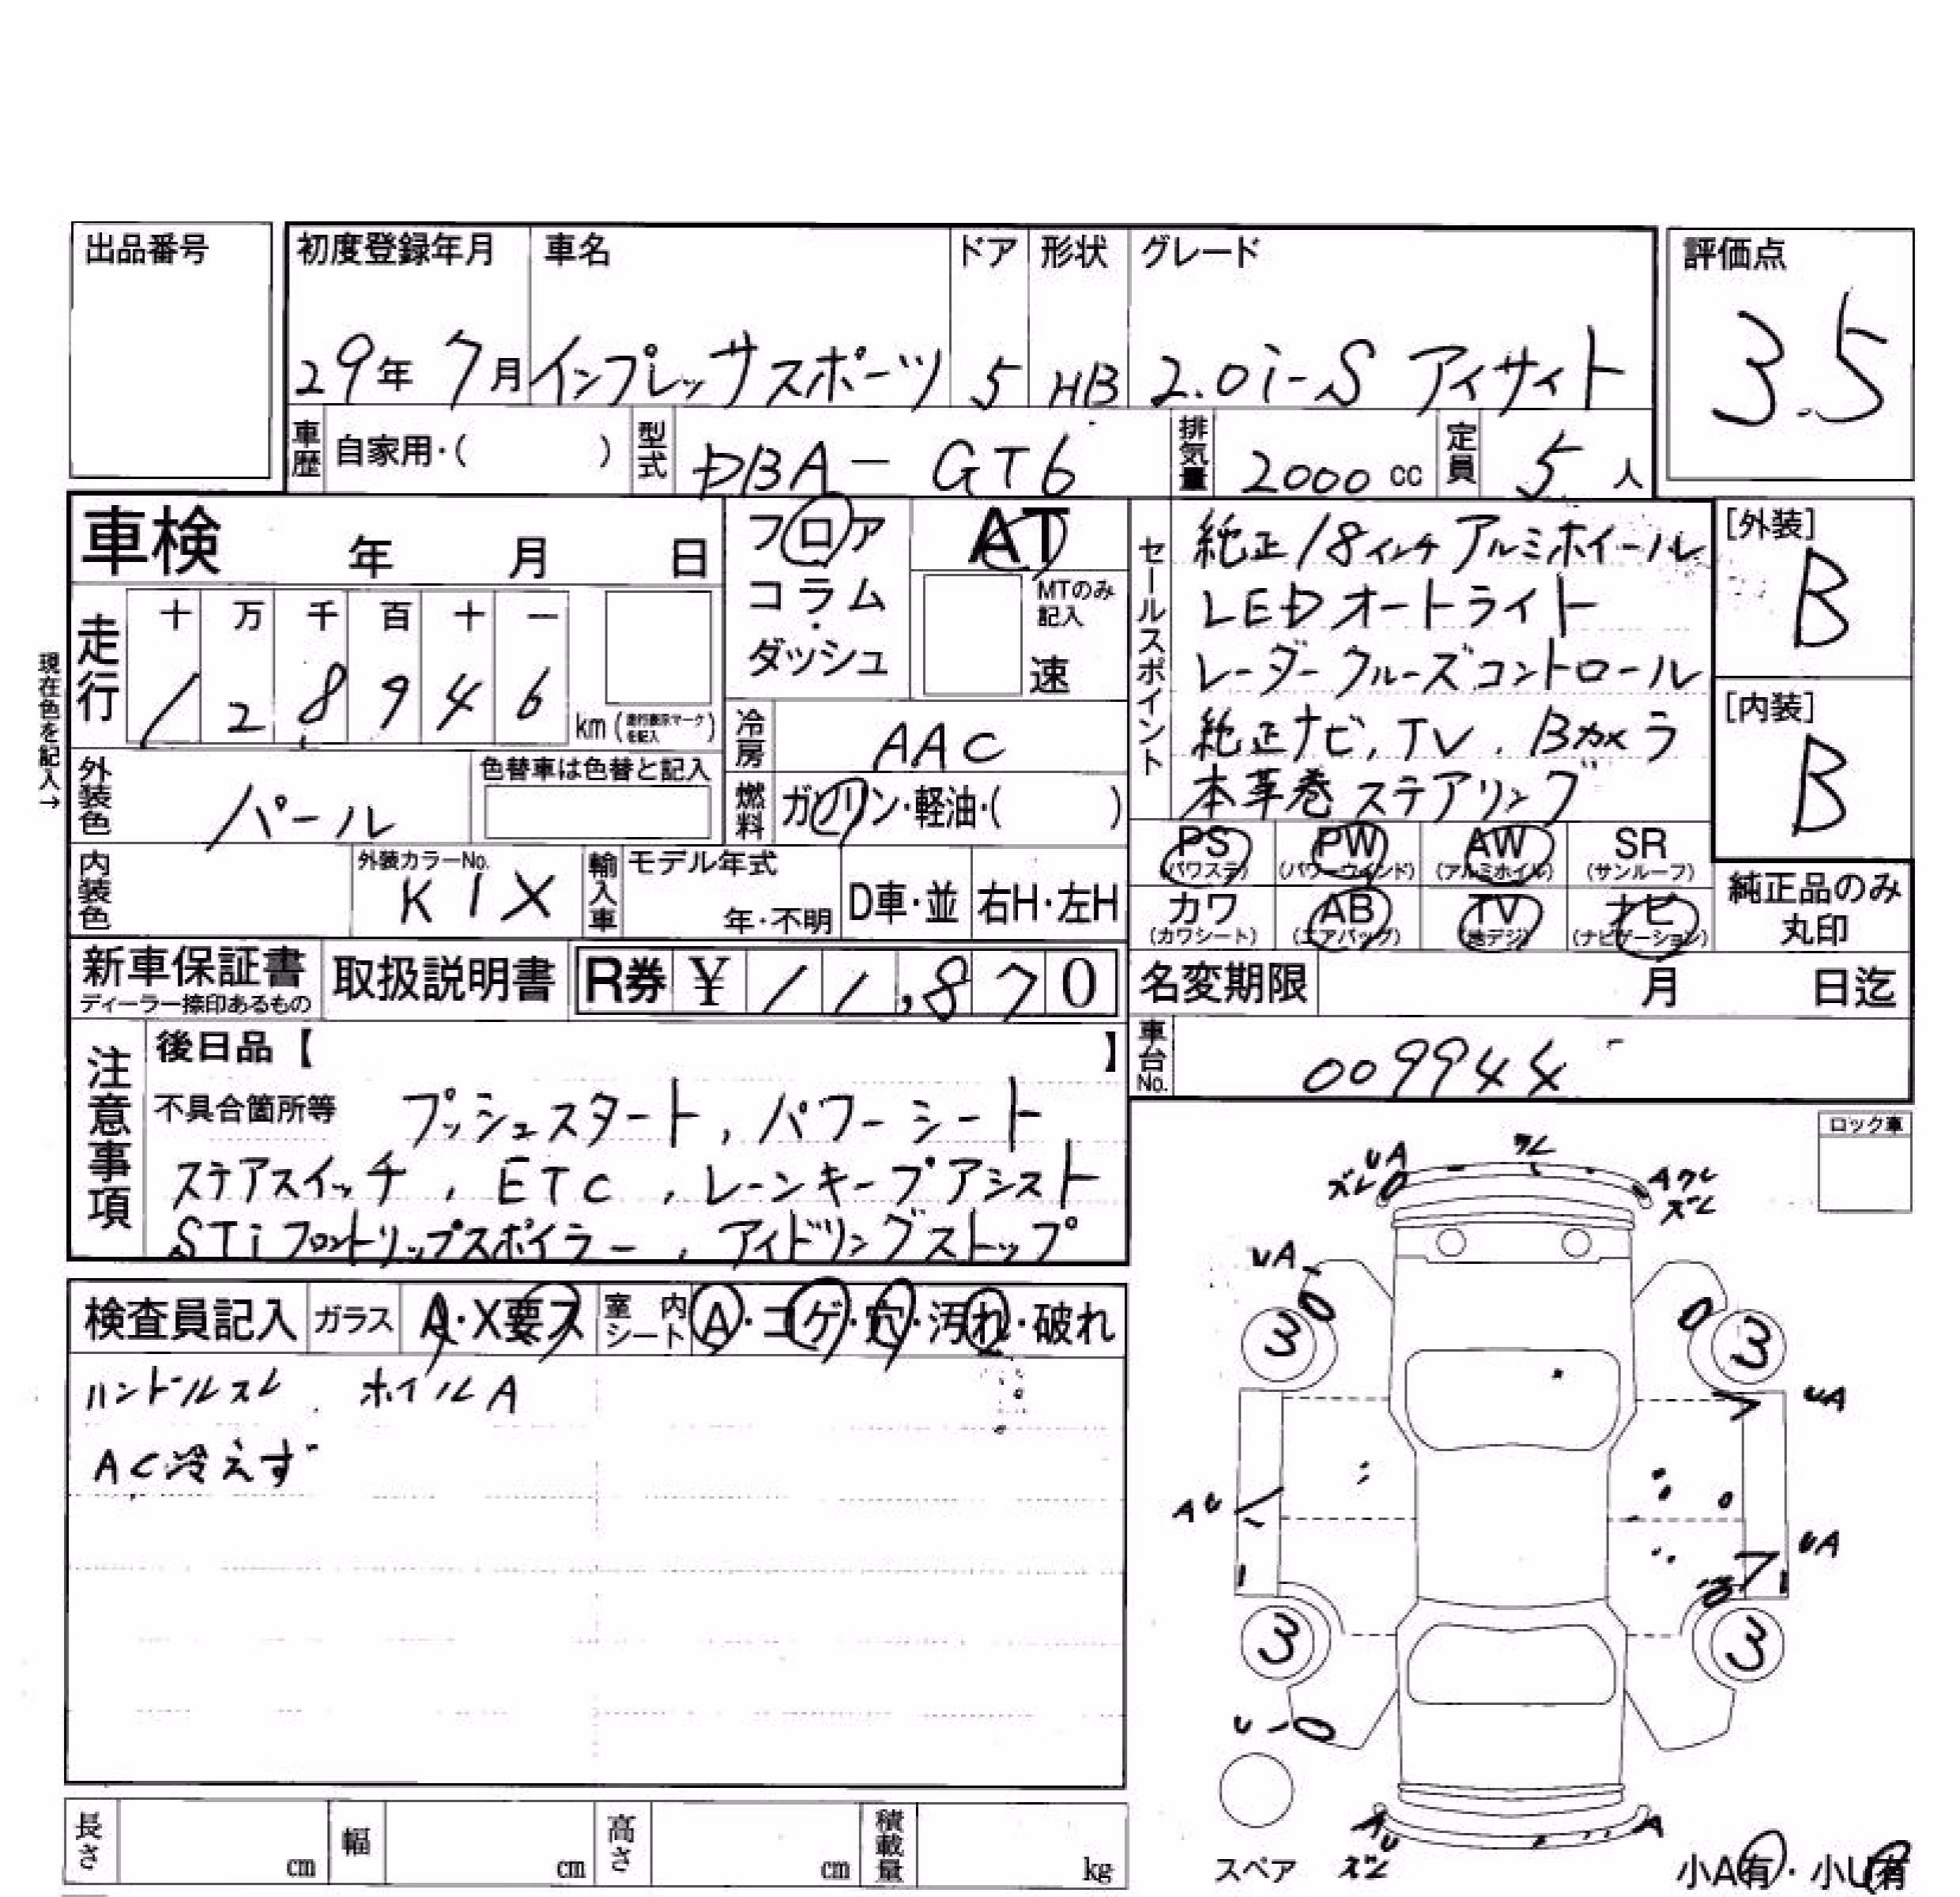 出品番号
初度登録年月 車名 ドア 形状 グレード 評価点
29年 7月 インプレッサスポーツ 5 HB 2.0i-S アイサイト 3.5
車歴 自家用・( ) 型式 DBA-GT6 排気量 2000 cc 定員 5 人
車検 年 月 日
フロア AT
コラム・
ダッシュ
MTのみ記入
速
現在色を記入→
走行 十 万 千 百 十 一
1 2 8 9 4 6 km (走行表示マークを記入)
冷房 AAC
燃料 ガソリン・軽油・( )
外装色 パール 色替車は色替と記入
内装色 外装カラーNo. K1X 輸入車 モデル年式 年・不明 D車・並 右H・左H
セールスポイント
純正18インチアルミホイール
LEDオートライト
レーダークルーズコントロール
純正ナビ, TV, Bカメラ
本革巻ステアリング
[外装]
B
[内装]
B
PS (パワステ) PW (パワーウインド) AW (アルミホイル) SR (サンルーフ)
カワ (カワシート) AB (エアバッグ) TV (地デジ) ナビ (ナビゲーション)
純正品のみ丸印
新車保証書 ディーラー捺印あるもの 取扱説明書 R券 ¥ 11,870
名変期限 月 日迄
車台No. 009944
注意事項
後日品【 】
不具合箇所等 プッシュスタート, パワーシート
ステアスイッチ, ETC, レーンキープアシスト
STiフロントリップスポイラー, アイドリングストップ
検査員記入 ガラス A・X要ス 室内シート A・コゲ・穴・汚れ・破れ
ハンドルスレ. ホイルA
AC冷えず
ロック車
UA
ズレ
Aワレ
ズレ
UA
3
3
UA
AU
UA
3
3
U
AU
ズレ
A
スペア
小A有・小U有
長さ cm 幅 cm 高さ cm 積載量 kg